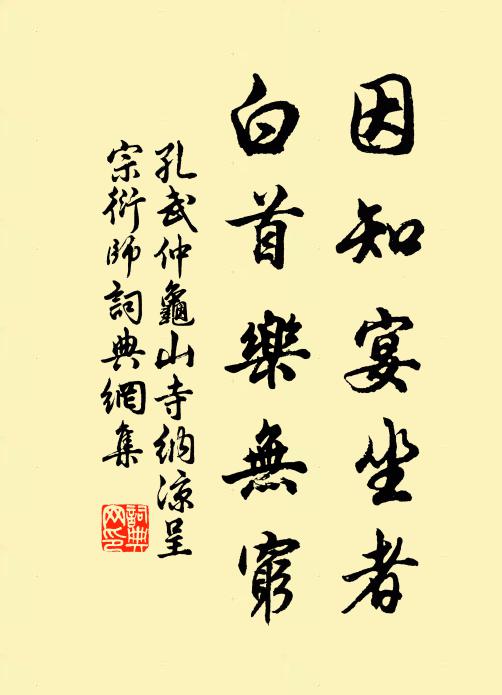 因知宴坐者
白首樂無窮
孔武仲龜山寺納凉呈
宗衍師詞典網集
詞典网印